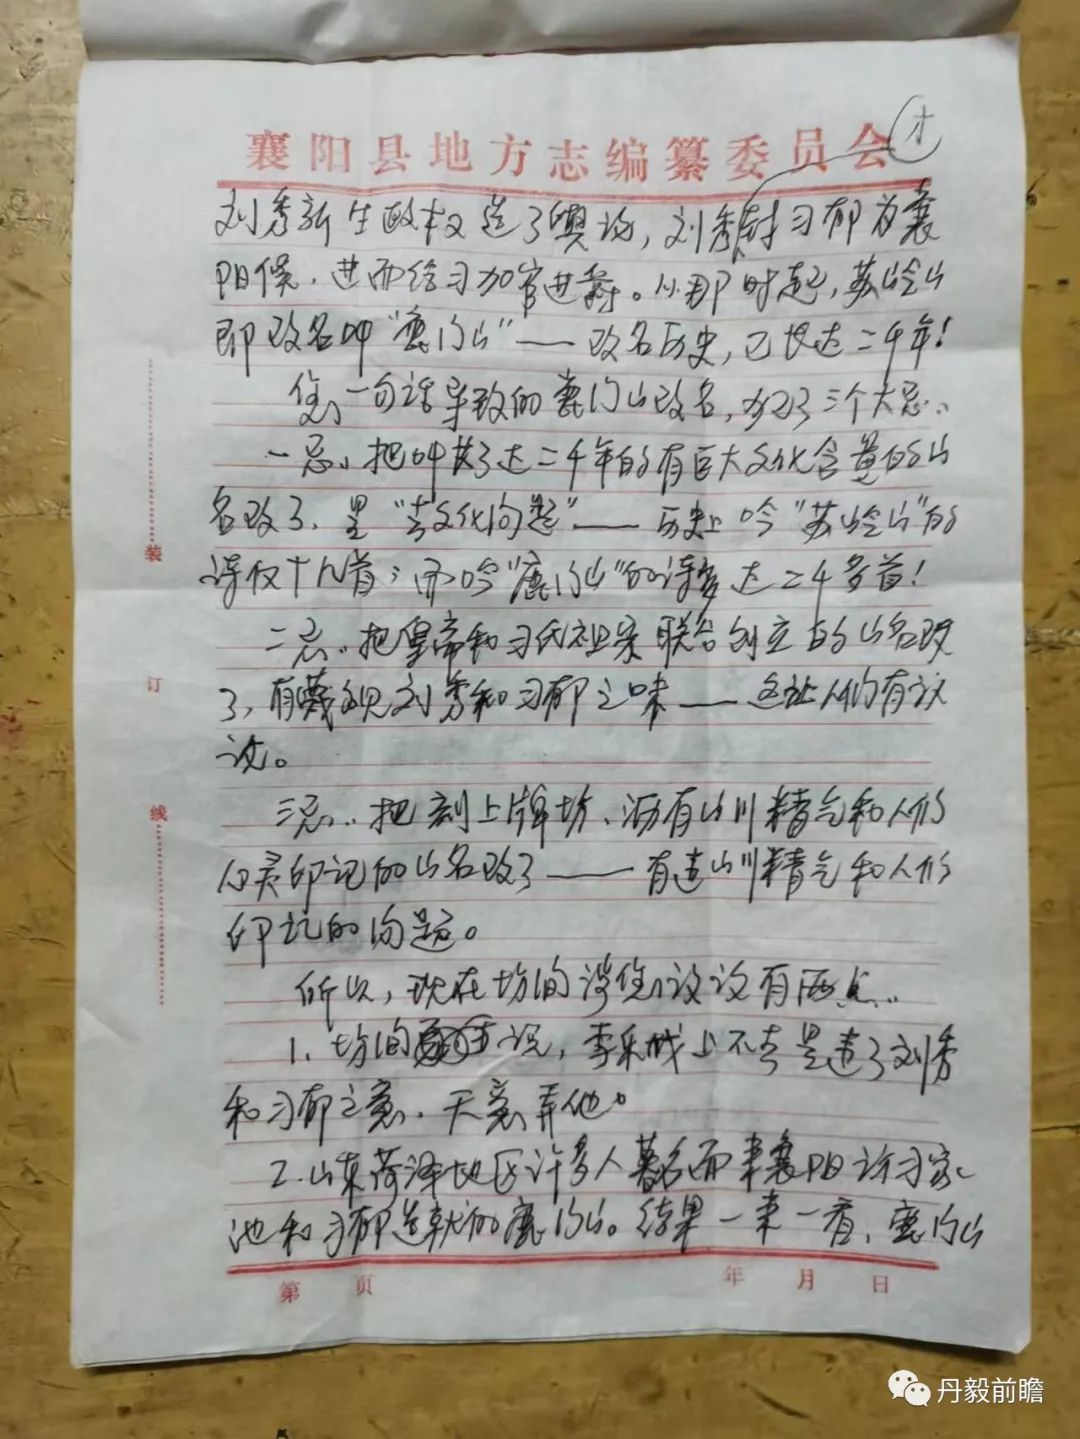 襄阳县地方志编纂委员会
刘秀新生政权造了舆论，刘秀封习郁为襄
阳侯，进而给习加官进爵。从那时起，苏岭山
即改名叫“鹿门山”——改名历史，已长达二千年！
您一句话导致的鹿门山改名，犯了三个大忌：
一忌、把叫了达二千年的有巨大文化含量的山
名改了，是“去文化问题”——历史上吟“苏岭山”的
诗仅十几首；而吟“鹿门山”的诗多达二千多首！
二忌、把皇帝和习氏祖宗联合创立的山名改
了，有蔑视刘秀和习郁之味——这让人们有议
论。
三忌、把刻上牌坊、沥有山川精气和人们
心灵印记的山名改了——有违山川精气和人们
印记的问题。
所以，现在坊间谈您议论有两点：
1、坊间说，李乐成上不去是违了刘秀
和习郁之意，天意弄他。
2、山东荷泽地区许多人慕名而来襄阳访习家
池和习郁造就的鹿门山。结果一来一看，鹿门山
装
订
线
第 页
年 月 日
丹毅前瞻